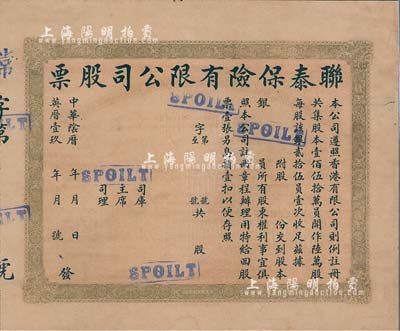 上海陽明拍賣
聯泰保險有限公司股票
本公司遵照香港有限公司則例註冊
共集股本壹佰伍拾萬員開作陸萬股
每股該銀貳拾伍員壹次收足茲據
附股 份交到股本
銀 員所有股東權利事宜俱
照本公司註冊章程辦理用特給回股
票壹張另息摺壹扣以便存照
字第 號
至 號共 股
司庫
主席
司理
中華陰曆 年 月 日
英曆壹玖 年 月 號 發
SPOILT
SPOILT
SPOILT
SPOILT
上海陽明拍賣
上海陽明拍賣
字第
號